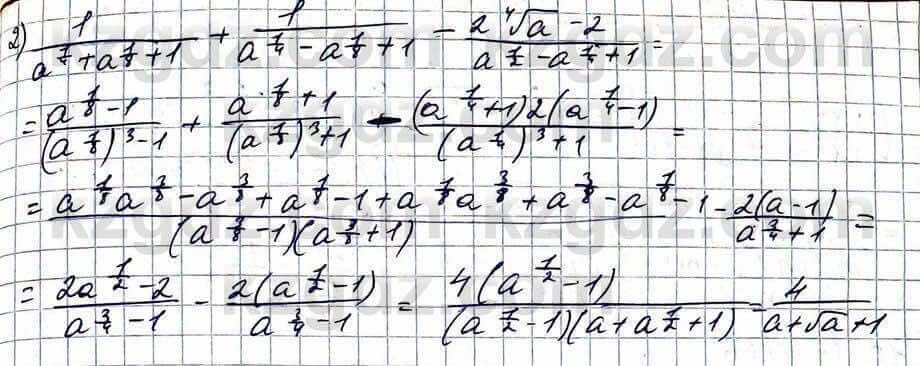 2) 1/(a^{1/4} + a^{1/8} + 1) + 1/(a^{1/4} - a^{1/8} + 1) - (2⁴√a - 2)/(a^{1/2} - a^{1/4} + 1) =
= (a^{1/8} - 1)/((a^{1/8})^3 - 1) + (a^{1/8} + 1)/((a^{1/8})^3 + 1) - (a^{1/4} + 1)2(a^{1/4} - 1)/((a^{1/4})^3 + 1) =
= (a^{1/8}a^{3/8} - a^{3/8} + a^{1/8} - 1 + a^{1/8}a^{3/8} + a^{3/8} - a^{1/8} - 1)/((a^{3/8} - 1)(a^{3/8} + 1)) - 2(a - 1)/(a^{3/4} + 1) =
= (2a^{1/2} - 2)/(a^{3/4} - 1) - 2(a^{1/2} - 1)/(a^{3/4} - 1) = 4(a^{1/2} - 1)/((a^{1/2} - 1)(a + a^{1/2} + 1)) = 4/(a + √a + 1)